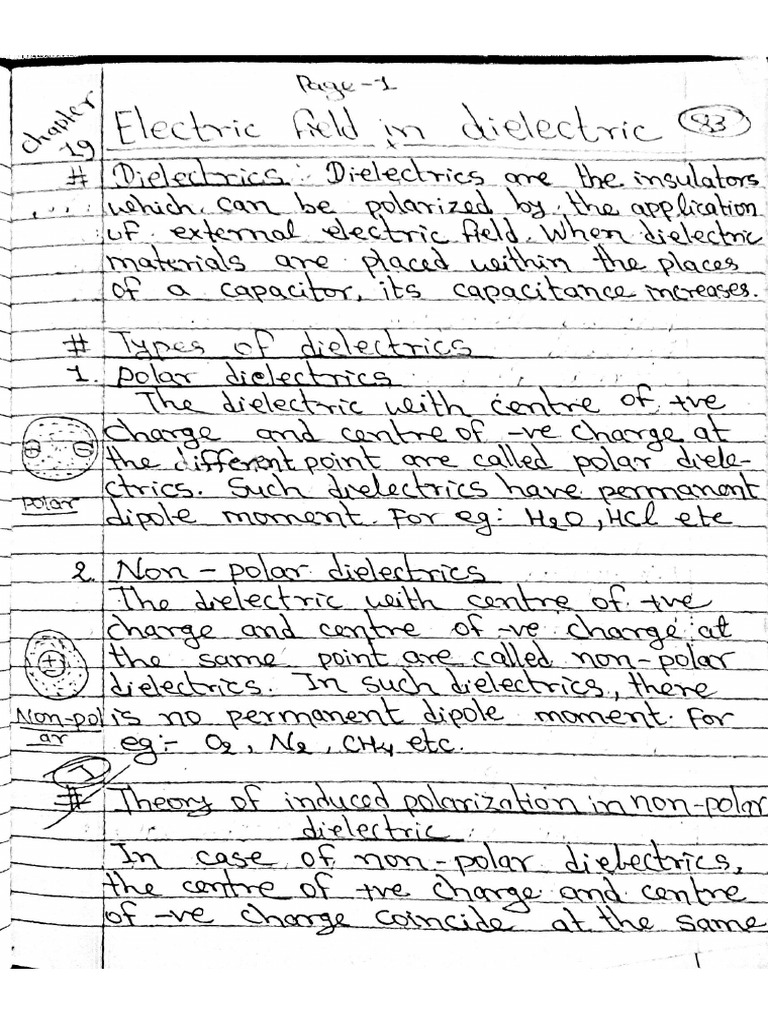 Page-1
Chapter 19
Electric field in dielectric
# Dielectrics :- Dielectrics are the insulators
which can be polarized by the application
of external electric field. When dielectric
materials are placed within the places
of a capacitor, its capacitance increases.
# Types of dielectrics
1. Polar dielectrics
The dielectric with centre of +ve
charge and centre of -ve charge at
the different point are called polar diele-
ctrics. Such dielectrics have permanent
dipole moment. For eg: H2O, HCl etc
- -
Polar
2. Non-polar dielectrics
The dielectric with centre of +ve
charge and centre of -ve charge at
the same point are called non-polar
dielectrics. In such dielectrics, there
is no permanent dipole moment. For
eg:- O2, N2, CH4 etc.
+
Non-pol
ar
# Theory of induced polarization in non-polar
dielectric
In case of non-polar dielectrics,
the centre of +ve charge and centre
of -ve charge coincide at the same
1